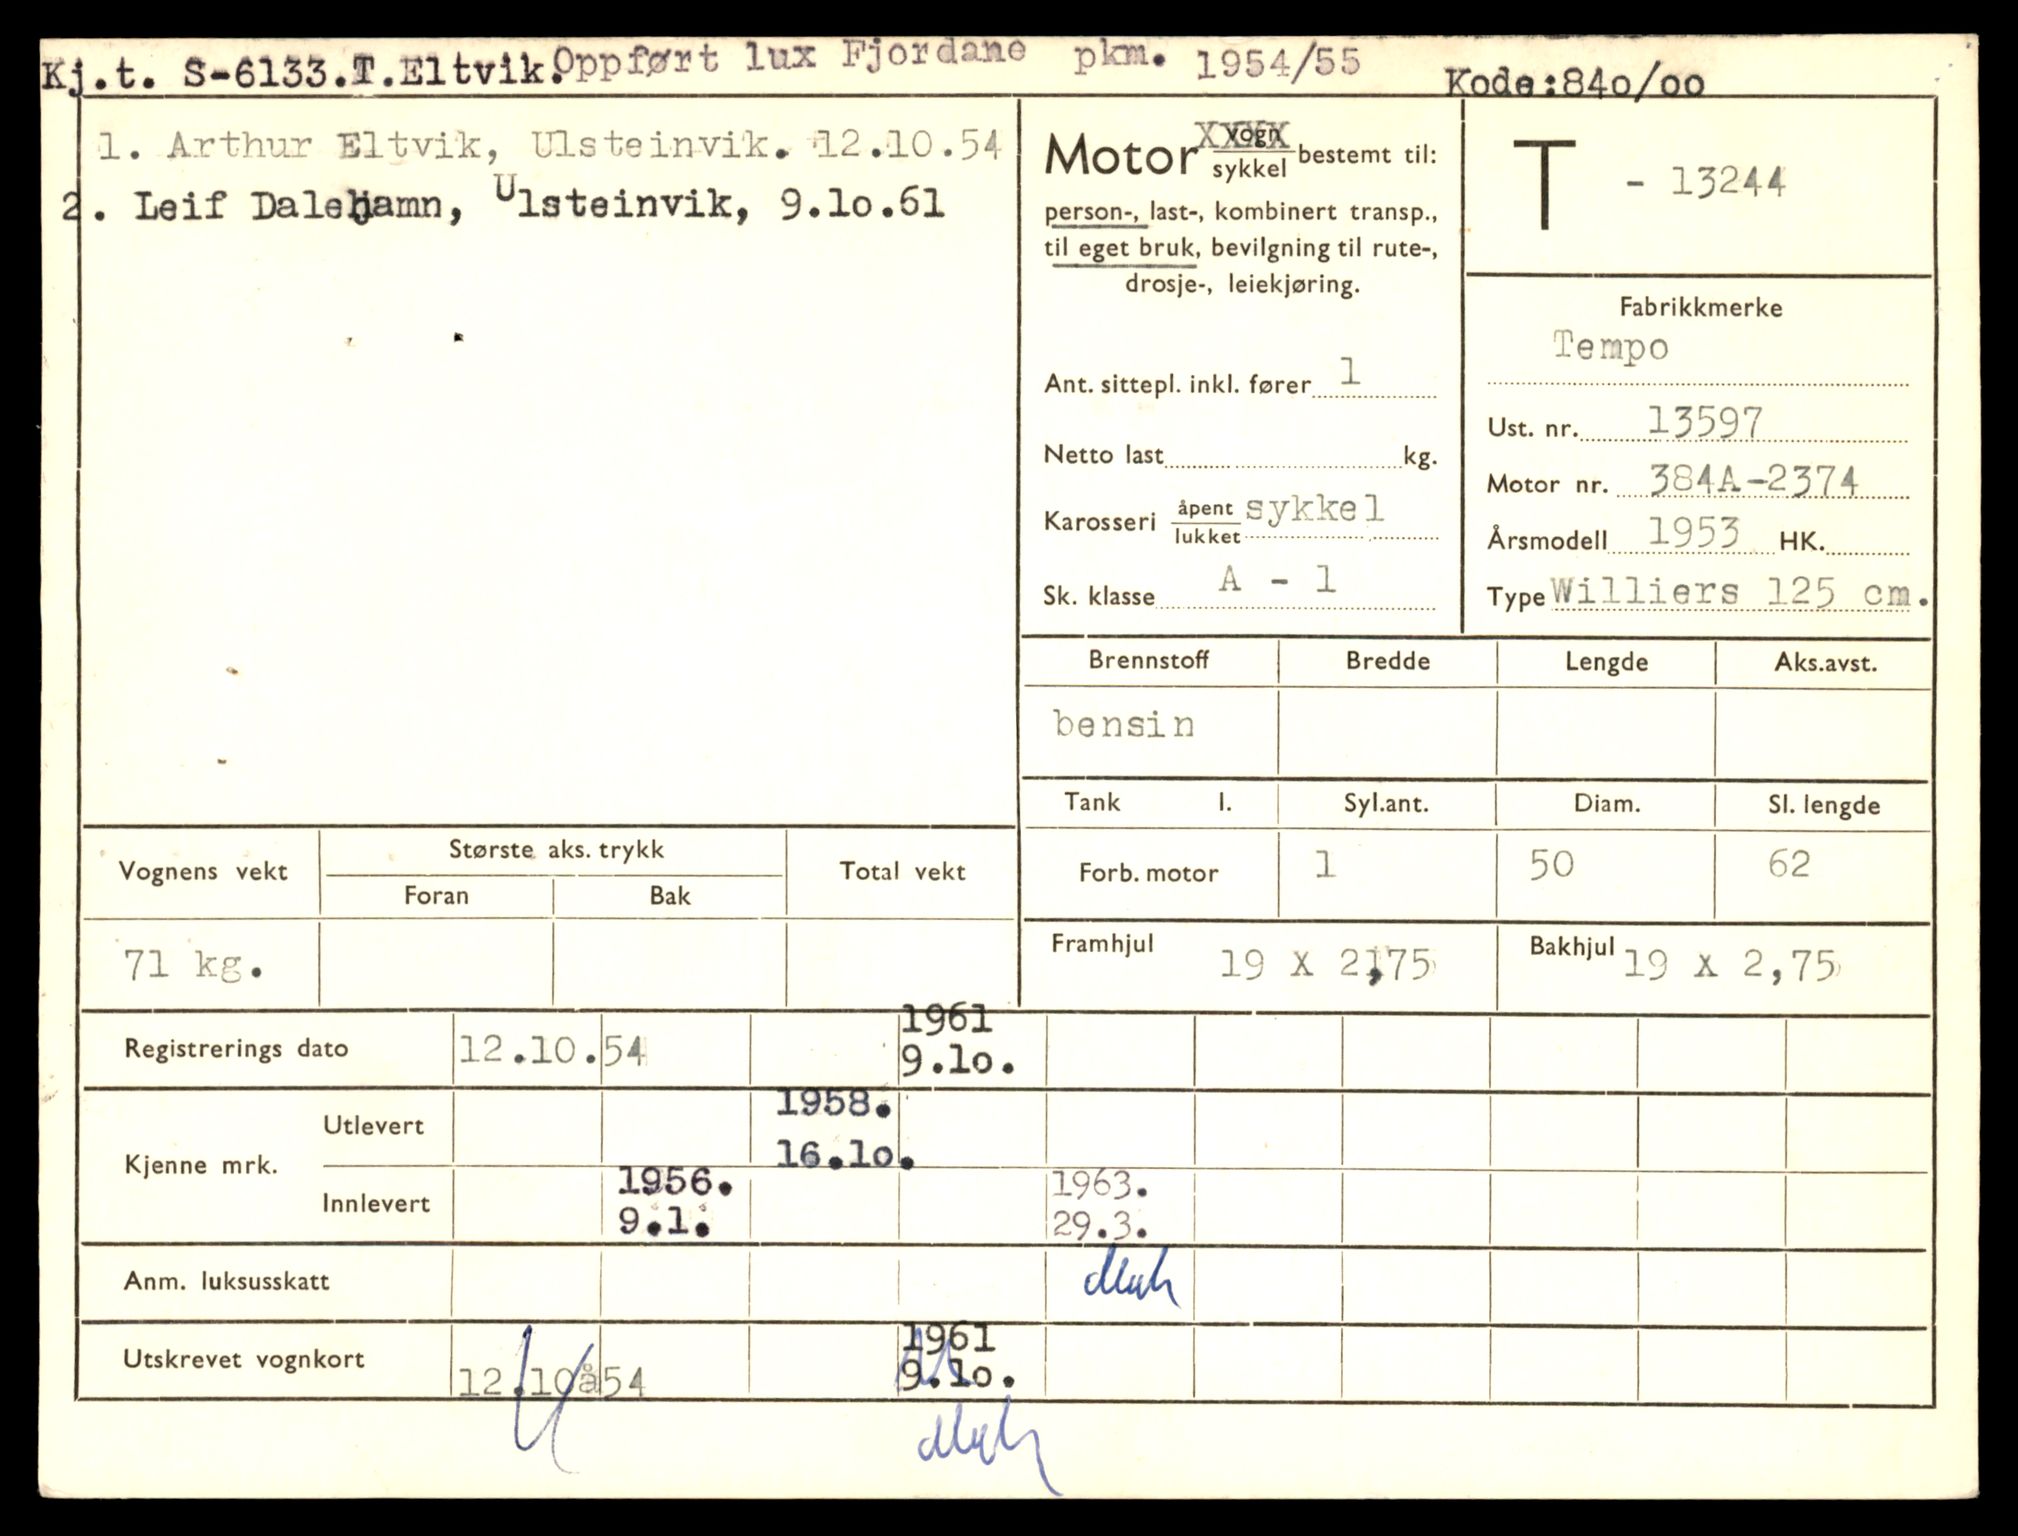 Kj.t. S-6133.T.Eltvik. Oppført lux Fjordane pkm. 1954/55 Kode:840/00
1. Arthur Eltvik, Ulsteinvik. 12.10.54
2. Leif Dalehamn, Ulsteinvik, 9.10.61
Motor vogn XXXX
sykkel bestemt til:
person-, last-, kombinert transp.,
til eget bruk, bevilgning til rute-,
drosje-, leiekjøring.
Ant. sittepl. inkl. fører 1
Netto last kg.
Karosseri åpent sykkel
lukket
Sk. klasse A - 1
T - 13244
Fabrikkmerke
Tempo
Ust. nr. 13597
Motor nr. 384A-2374
Årsmodell 1953 HK.
Type Williers 125 cm.
Brennstoff Bredde Lengde Aks.avst.
bensin
Tank l. Syl.ant. Diam. Sl. lengde
Forb. motor 1 50 62
Framhjul 19 X 2,75 Bakhjul 19 X 2,75
Vognens vekt Største aks. trykk Total vekt
Foran Bak
71 kg.
Registrerings dato 12.10.54 1961
9.10.
Kjenne mrk. Utlevert 1958.
16.10.
Innlevert 1956. 1963.
9.1. 29.3.
Anm. luksusskatt
Utskrevet vognkort 12.10å54 1961
9.10.